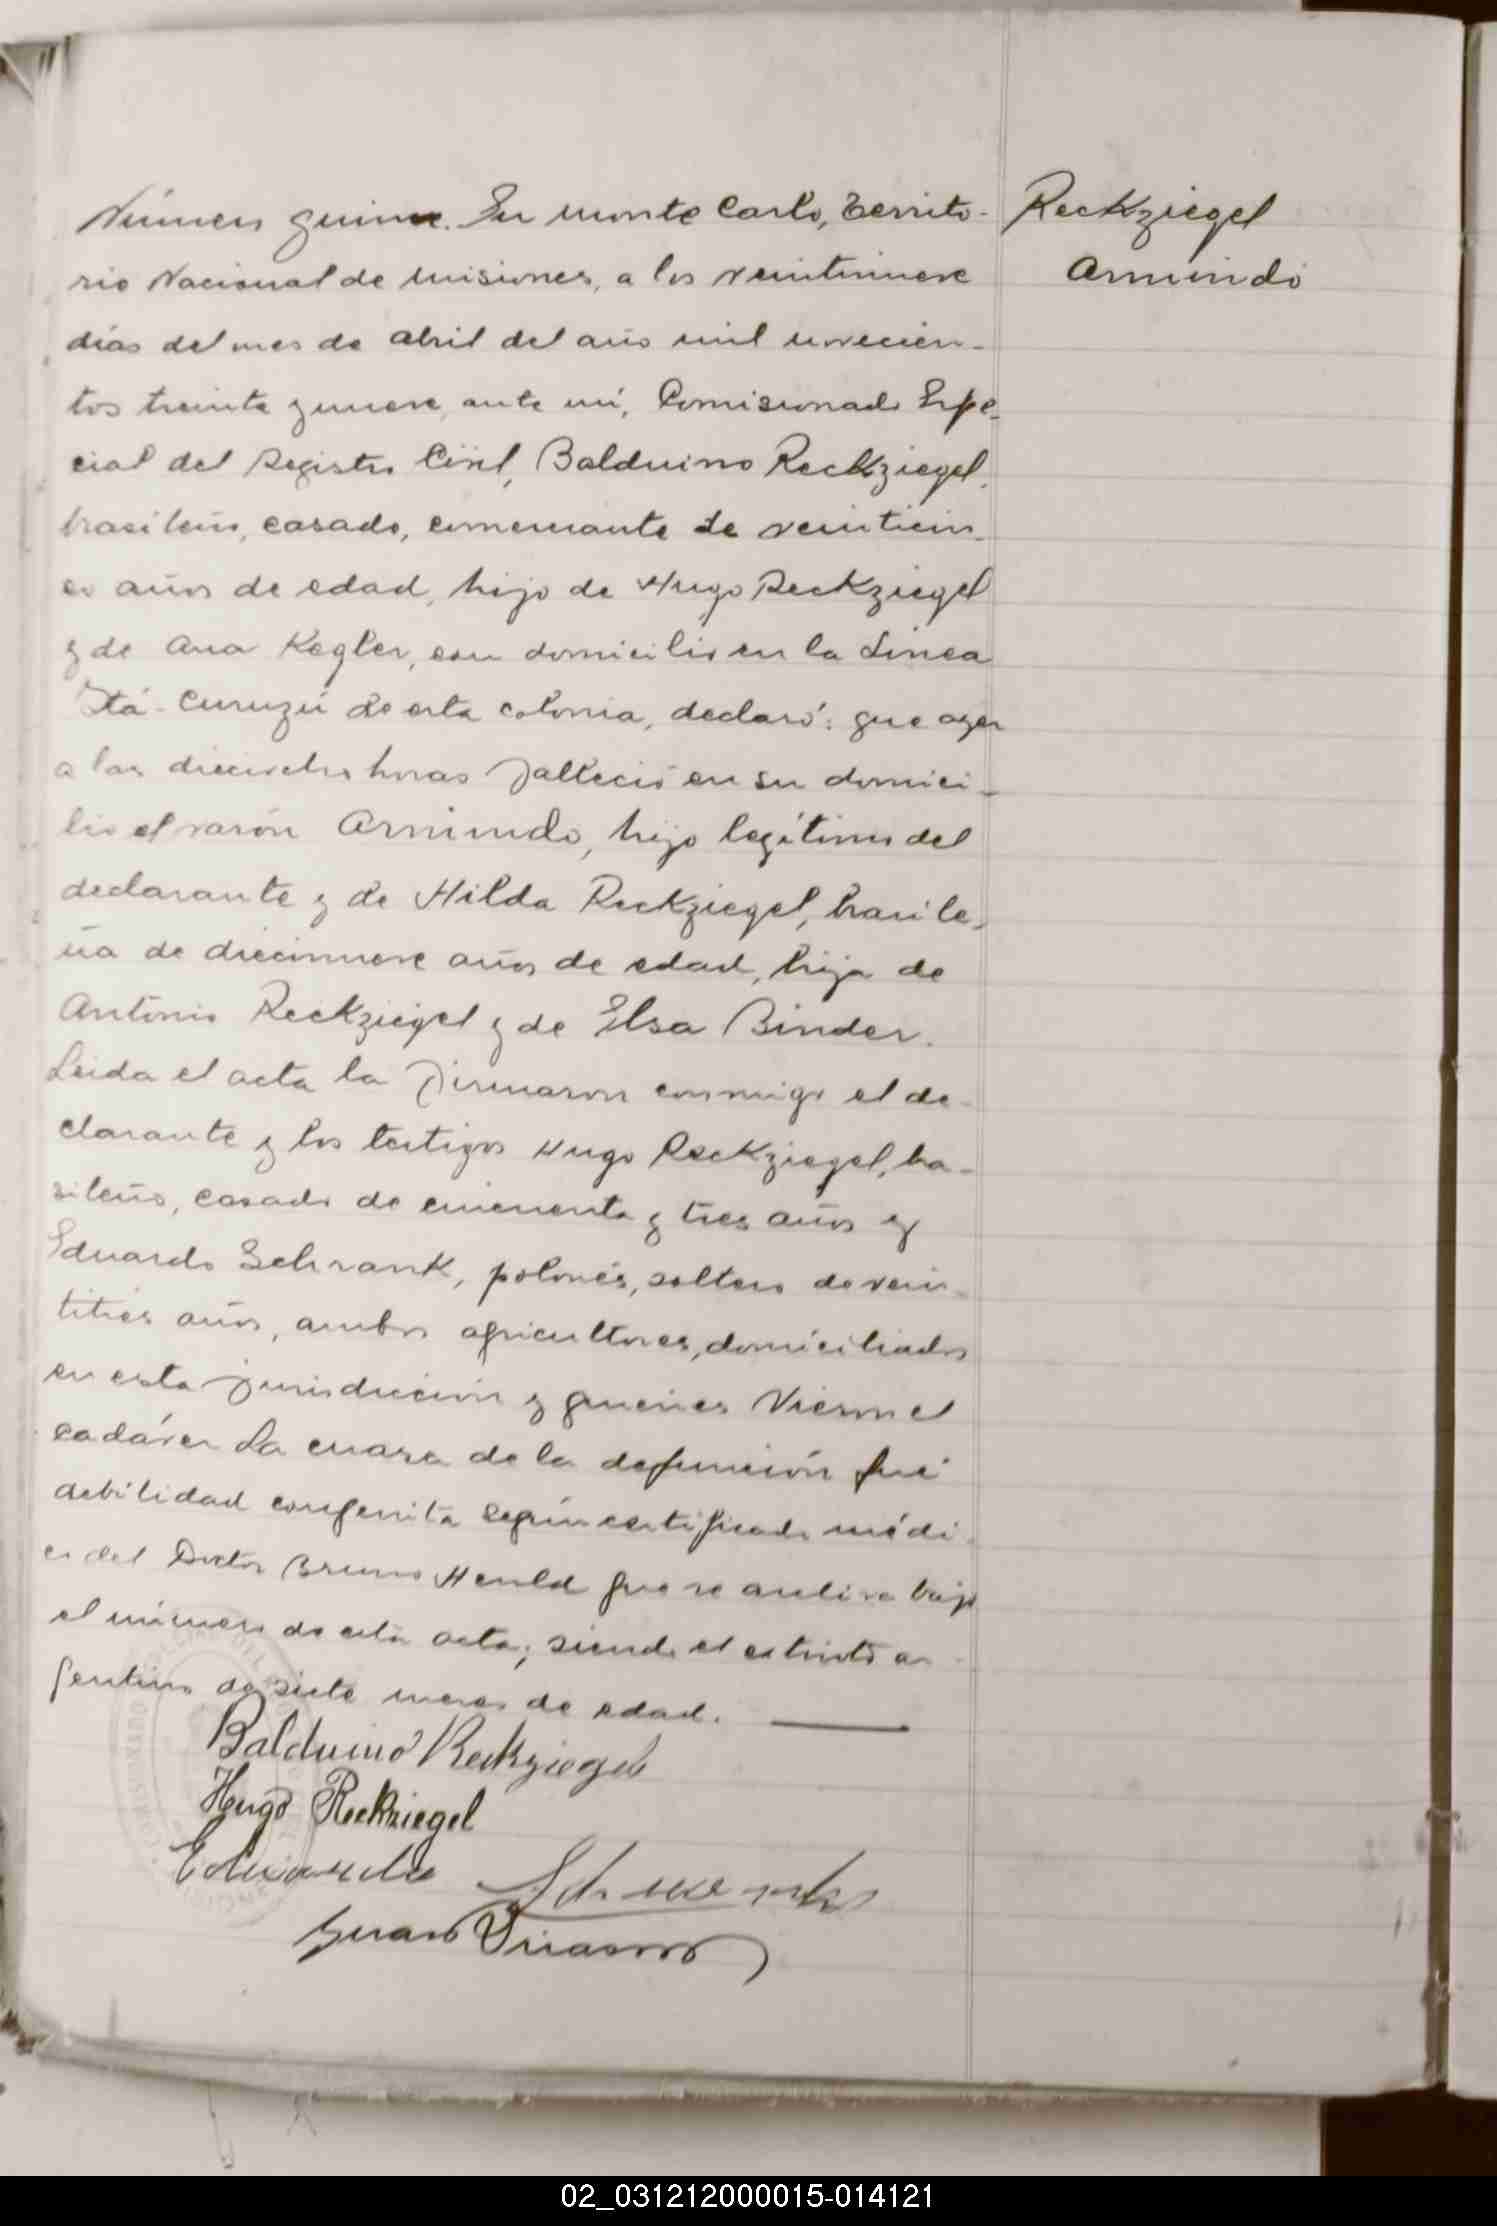 Número quince. En Monte Carlo, Territo-
rio Nacional de Misiones, a los veintinueve
días del mes de Abril del año mil novecien-
tos treinta y nueve, ante mí, Comisionado Espe-
cial del Registro Civil, Balduino Reckziegel,
brasileño, casado, comerciante de veinticin-
co años de edad, hijo de Hugo Reckziegel
y de Ana Kegler, con domicilio en la Linea
Itá-Curuzú de esta colonia, declaró: que ayer
a las dieciocho horas falleció en su domici-
lio el varón Armindo, hijo legítimo del
declarante y de Hilda Reckziegel, brasile-
ña de diecinueve años de edad, hija de
Antonio Reckziegel y de Elsa Binder.
Leida el acta la firmaron conmigo el de-
clarante y los testigos Hugo Reckziegel, bra-
sileño, casado de cincuenta y tres años y
Eduardo Schrank, polonés, soltero de vein-
titrés años, ambos agricultores, domiciliados
en esta jurisdicción y quienes vieron el
cadáver La causa de la defunción fué
debilidad congenita según certificado médi-
co del Doctor Bruno que se archiva bajo
el número de esta acta; siendo el extinto ar-
gentino de siete meses de edad.
Balduino Reckziegel
Hugo Reckziegel
Eduardo Schrank
Reckziegel
Armindo
02_031212000015-014121